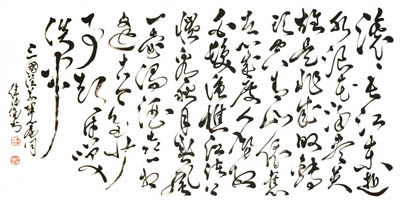 滚滚长江东逝
水浪花淘尽英
雄是非成败转
头空青山依旧
在几度夕阳红
白发渔樵江渚上
惯看秋月春风
一壶浊酒喜相
逢古今多少
事都付笑
谈中
三國演义